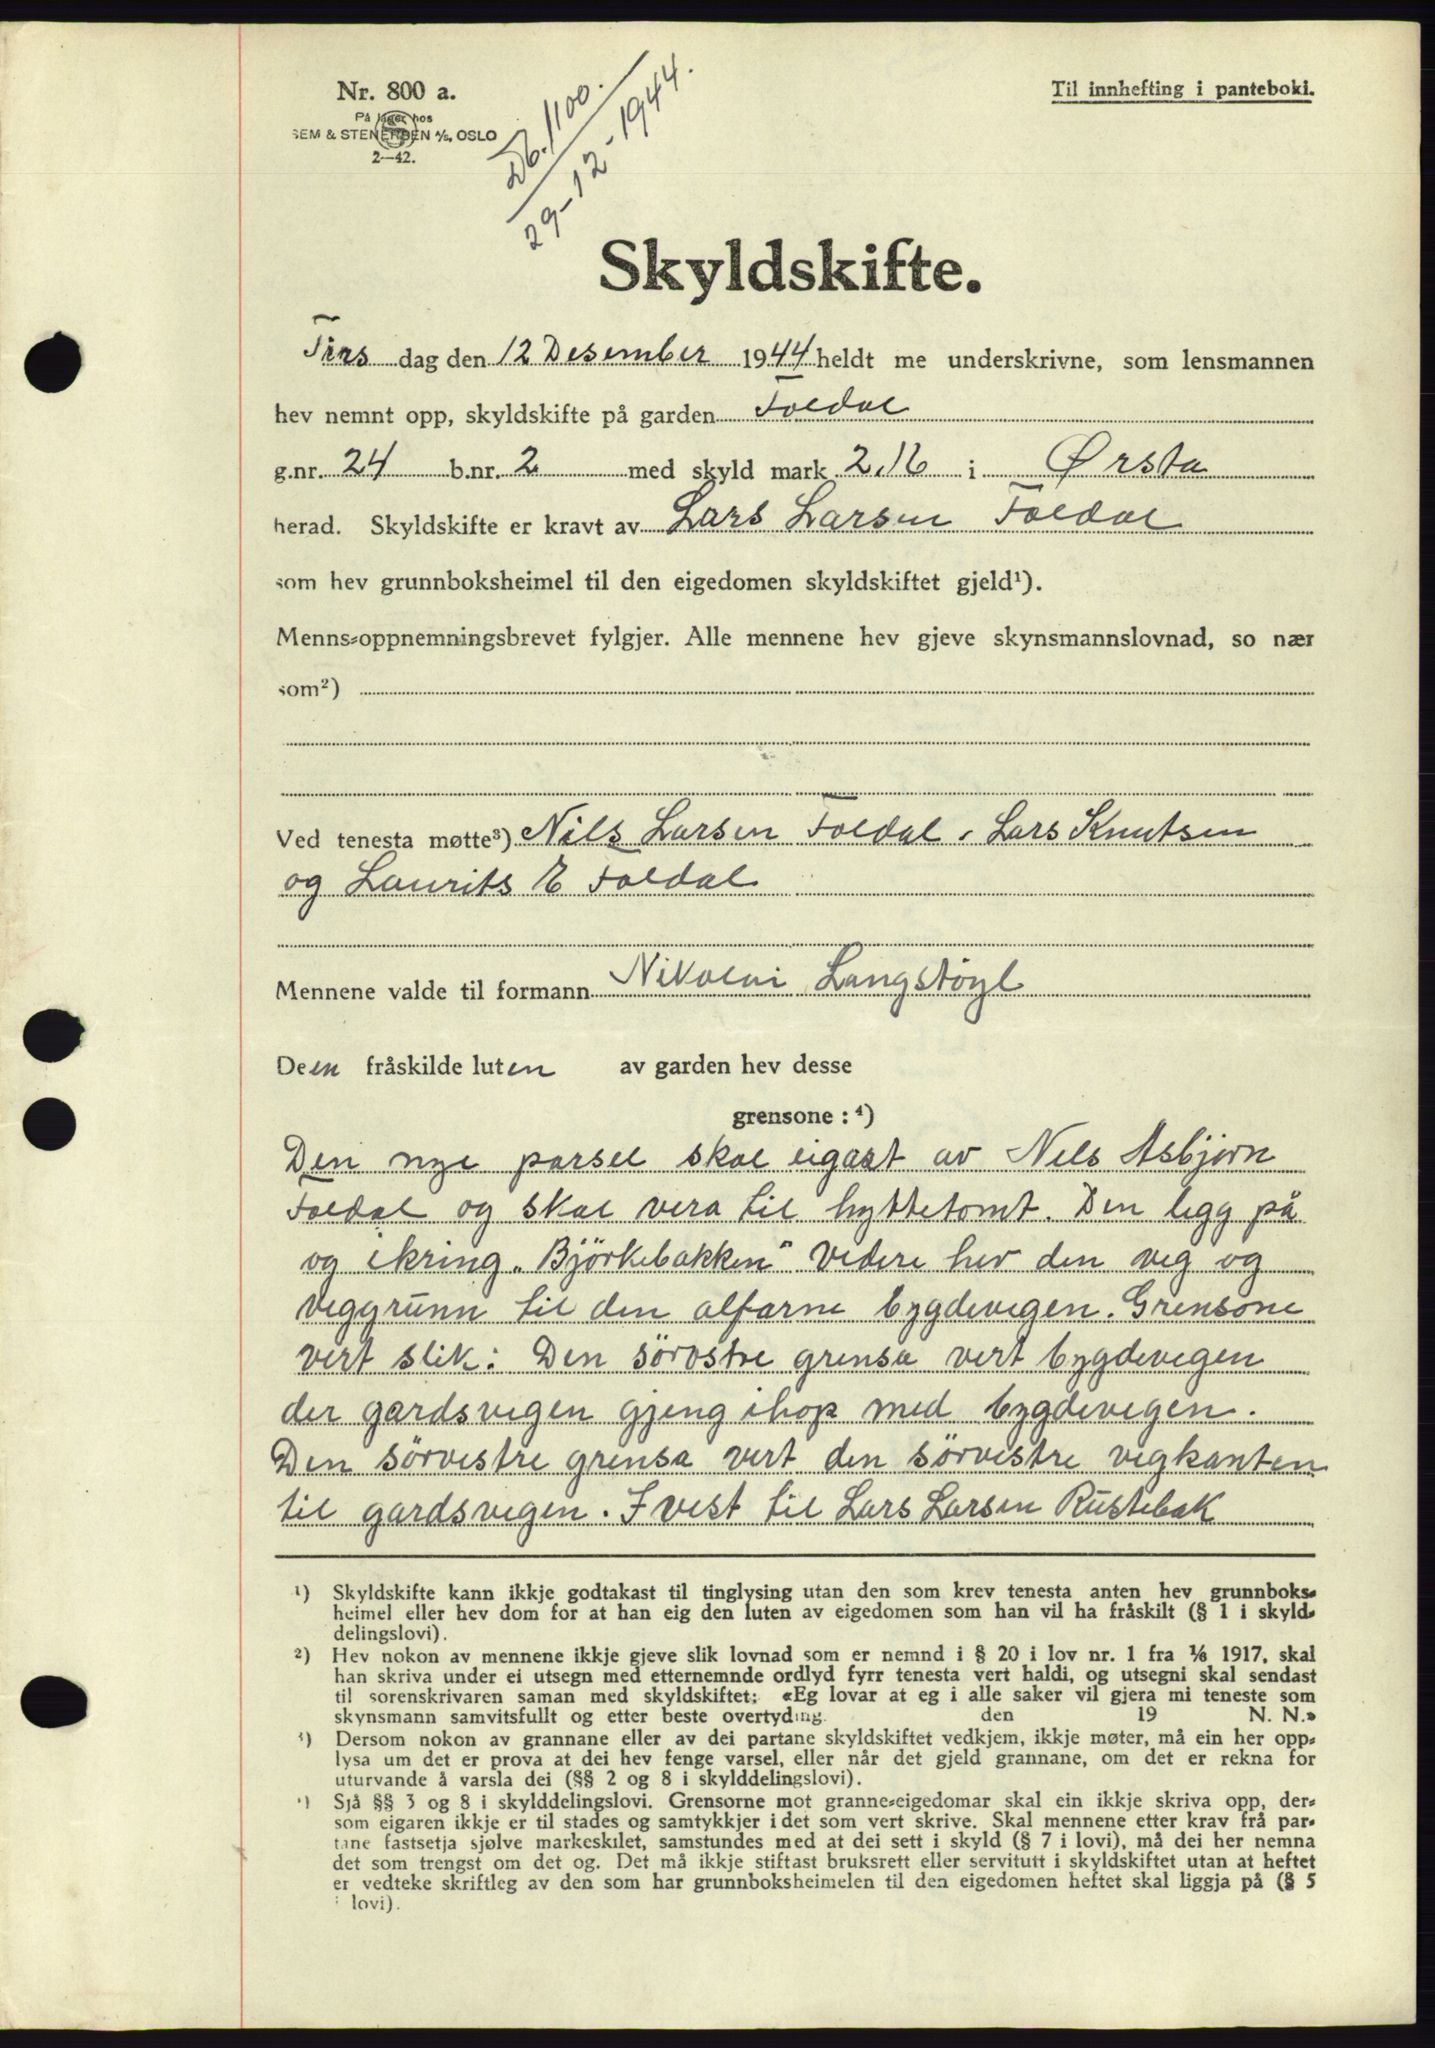 Nr. 800 a.
På lager hos
SEM & STENERSEN A/S, OSLO
2—42.
Db. 1100.
29-12-1944.
Til innhefting i panteboki.
Skyldskifte.
Tirs dag den 12 Desember 1944 heldt me underskrivne, som lensmannen
hev nemnt opp, skyldskifte på garden Foldal
g.nr. 24 b.nr. 2 med skyld mark 2,16 i Ørsta
herad. Skyldskifte er kravt av Lars Larsen Foldal
som hev grunnboksheimel til den eigedomen skyldskiftet gjeld¹).
Menns-oppnemningsbrevet fylgjer. Alle mennene hev gjeve skynsmannslovnad, so nær
som²)
Ved tenesta møtte³) Nils Larsen Foldal, Lars Knutsen
og Laurits E Foldal
Mennene valde til formann Nikolai Langstöyl
Deen fråskilde luten av garden hev desse
grensone: ⁴)
Den nye parsel skal eigast av Nils Asbjörn
Foldal og skal vera til hyttetomt. Den ligg på
og ikring „Björkebakken" videre hev den veg og
veggrunn til den alfarne bygdevegen. Grensone
vert slik: Den sörostre grensa vert bygdevegen
der gardsvegen gjeng ihop med bygdevegen.
Den sörvestre grensa vert den sörvestre vegkanten
til gardsvegen. I vest til Lars Larsen Rustebak
¹) Skyldskifte kann ikkje godtakast til tinglysing utan den som krev tenesta anten hev grunnboks-
heimel eller hev dom for at han eig den luten av eigedomen som han vil ha fråskilt (§ 1 i skyld-
delingslovi).
²) Hev nokon av mennene ikkje gjeve slik lovnad som er nemnd i § 20 i lov nr. 1 fra 1/6 1917, skal
han skriva under ei utsegn med etternemnde ordlyd fyrr tenesta vert haldi, og utsegni skal sendast
til sorenskrivaren saman med skyldskiftet: «Eg lovar at eg i alle saker vil gjera mi teneste som
skynsmann samvitsfullt og etter beste overtyding. den 19 N. N.»
³) Dersom nokon av grannane eller av dei partane skyldskiftet vedkjem, ikkje møter, må ein her opp-
lysa um det er prova at dei hev fenge varsel, eller når det gjeld grannane, om det er rekna for
uturvande å varsla dei (§§ 2 og 8 i skylddelingslovi).
⁴) Sjå §§ 3 og 8 i skylddelingslovi. Grensorne mot granne-eigedomar skal ein ikkje skriva opp, der-
som eigaren ikkje er til stades og samtykkjer i det som vert skrive. Skal mennene etter krav frå par-
tane fastsetja sjølve markeskilet, samstundes med at dei sett i skyld (§ 7 i lovi), må dei her nemna
det som trengst om det og. Det må ikkje stiftast bruksrett eller servitutt i skyldskiftet utan at heftet
er vedteke skriftleg av den som har grunnboksheimelen til den eigedomen heftet skal liggja på (§ 5
i lovi).